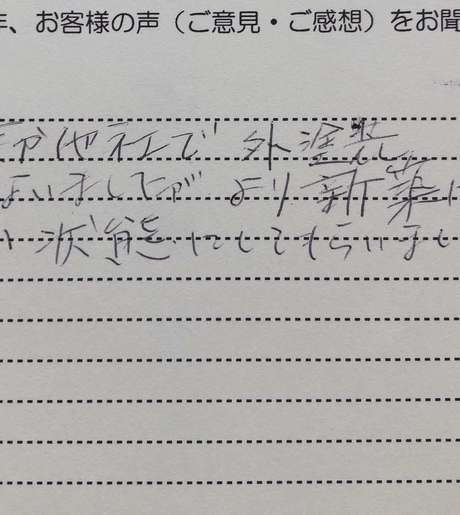 年、お客様の声（ご意見・ご感想）をお聞
か他社で 外塗装
よいましたが より新築に
い状態にしてもらいまし